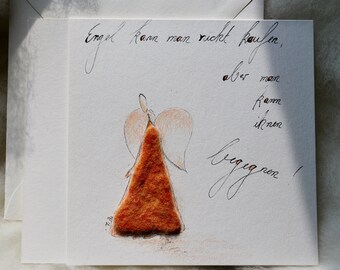 Engel kann man nicht kaufen,
aber man
kann
ihnen
begegnen!